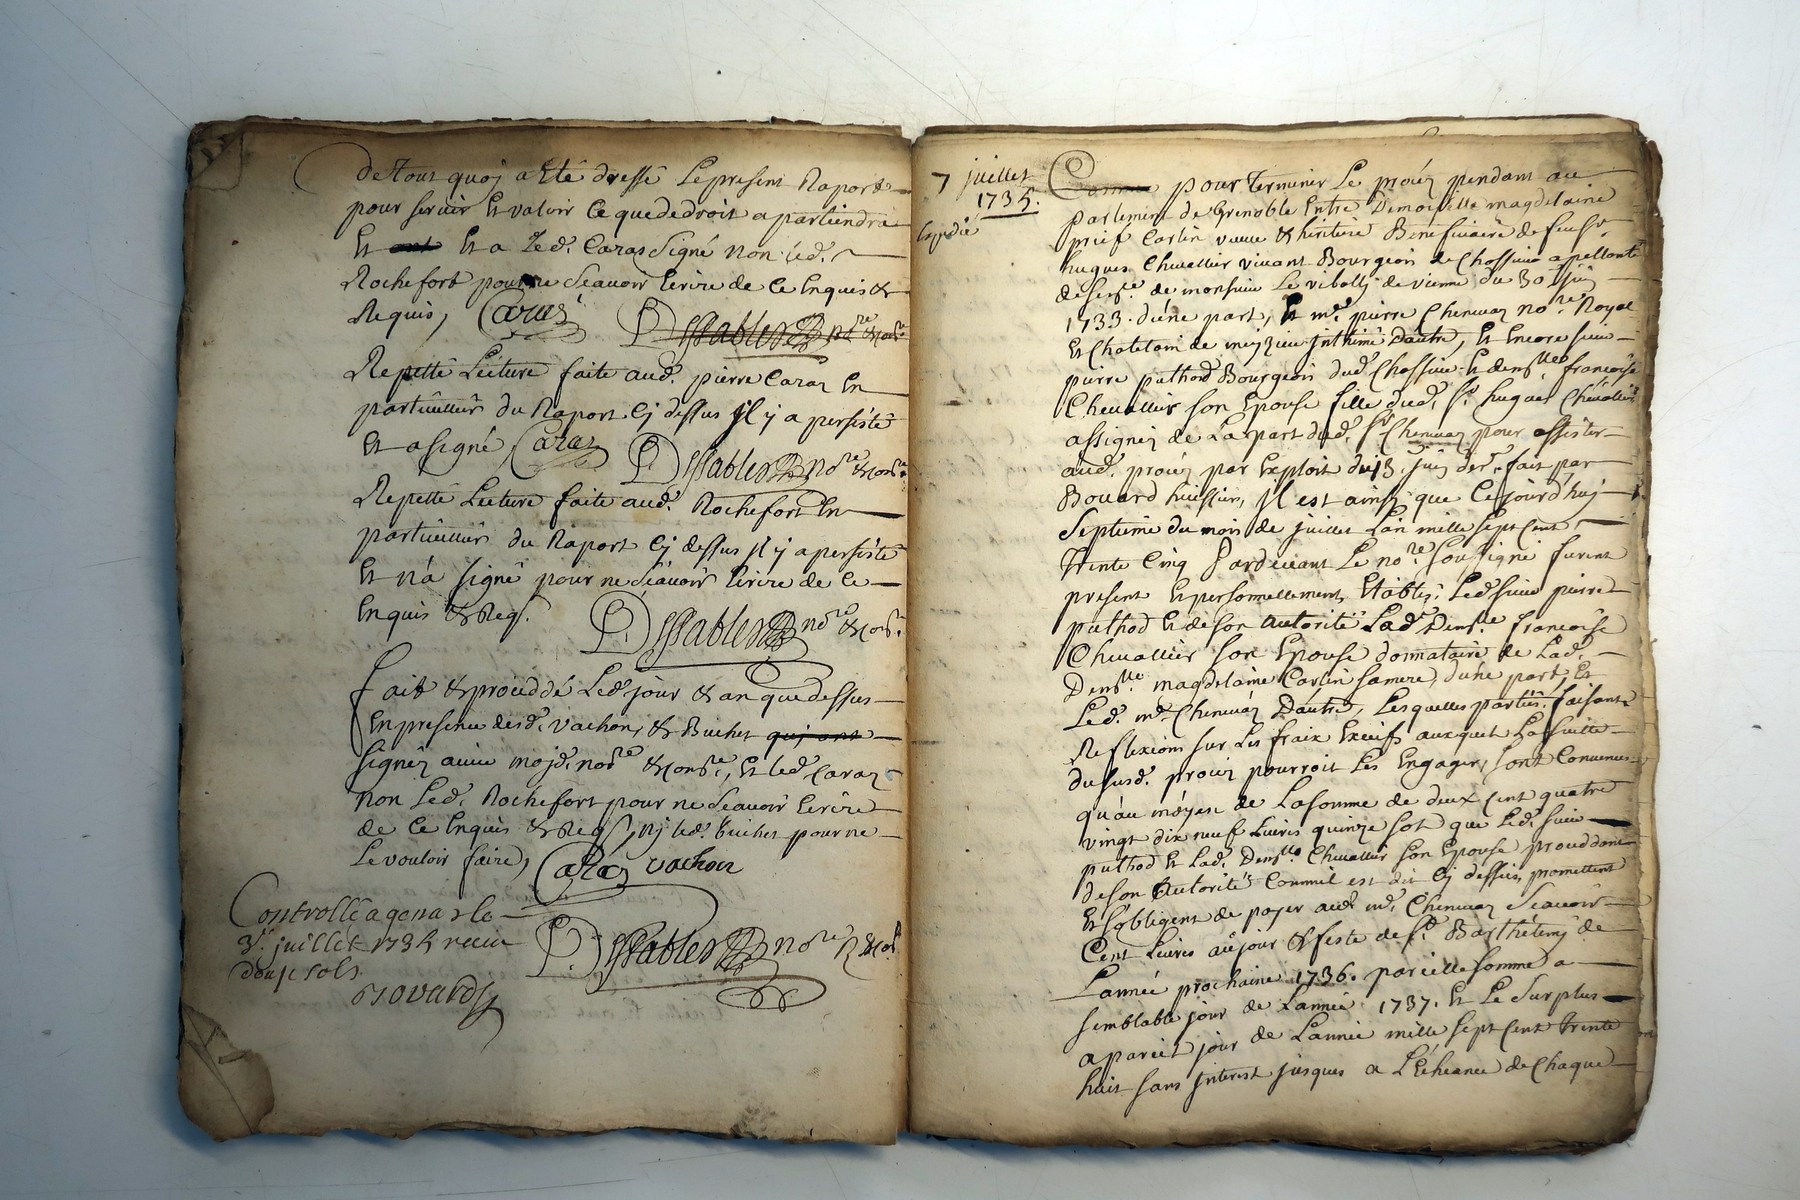 De tout quoy a Eté dressé Le present Raport
pour servir Et valoir Ce que de droit apartiendra
Et a Led. Caraz Signé non Led.
Rochefort pour ne Scavoir Ecrire de Ce Enquis &
Requis, Caraz
Repetté Lecture faite aud. pierre Caraz En
particulier du Raport Cy dessus Il y a persisté
Et a signé Caraz
Repetté Lecture faite aud. Rochefort En
particulier du Raport Cy dessus Il y a persisté
Et n'a signé pour ne scavoir Ecrire de Ce
Enquis & Req.
fait & procédé Led. jour & an que dessus
En presence desd. vachon, & Buchet qui ont
signéz avec moyd. no.re & Com.re, Et led. Caraz
non Led. Rochefort pour ne scavoir Ecrire
de Ce Enquis & Req. ny led. buchet pour ne
Le vouloir faire, Caraz vachon
Controllé a le
3e. juillet 1735 receu
douze sols
7 juillet
1735.
Expedié
Comme pour terminer Le procéz pendant au
parlement de Grenoble Entre Demoiselle magdelaine
Carlin veuve & heritiere Beneficiaire de feu S.r
hugues Chevallier vivant Bourgeois de apellante
de sent.ce de monsieur Le vibally de vienne du 30 Juin
1733. d'une part, Et m.e pierre no.re Royal
Et Chatelain de intimé D'autre, Et Encore sieur
pierre puthod Bourgeois dud. Et dem.lle françoise
Chevallier son Epouse fille dud. S.r hugues Chevallier
assignéz de La part dud. S.r pour assister
aud. procéz par Exploit du 13. juin der. fait par
Bouard huissier, Il est ainsy que Cejourd'huy
Septieme du mois de juillet L'an mille Sept Cent
trente Cinq Pardevant Le no.re Soussigné furent
present En personnellement Etablis, Led. sieur pierre
puthod Et de son Autorité Lad. Dem.lle françoise
Chevallier son Epouse donnataire de Lad.
Dem.lle magdelaine Carlin sa mere, d'une part, Et
Led. m.e D'autre, Lesquelles parties faisant
Reflexions sur Les fraix Excessifs auxquels La suitte
du susd. procéz pourroit Les Engager, sont Convenus
qu'au moyen de La somme de deux Cent quatre
vingt dix neuf Livres quinze sols que Led. sieur
puthod Et Lad. Dem.lle Chevallier son Epouse procedant
de son Autorité Comme il est dit Cy dessus, promettent
Et s'obligent de payer aud. m.e Scavoir
Cent Livres au jour & feste de S.t Barthelemy de
L'année prochaine 1736. pareille somme a
semblable jour de L'année 1737. Et Le Surplus
a pareil jour de L'année mille sept Cent trente
huit sans interest jusques a L'Echeance de Chaque